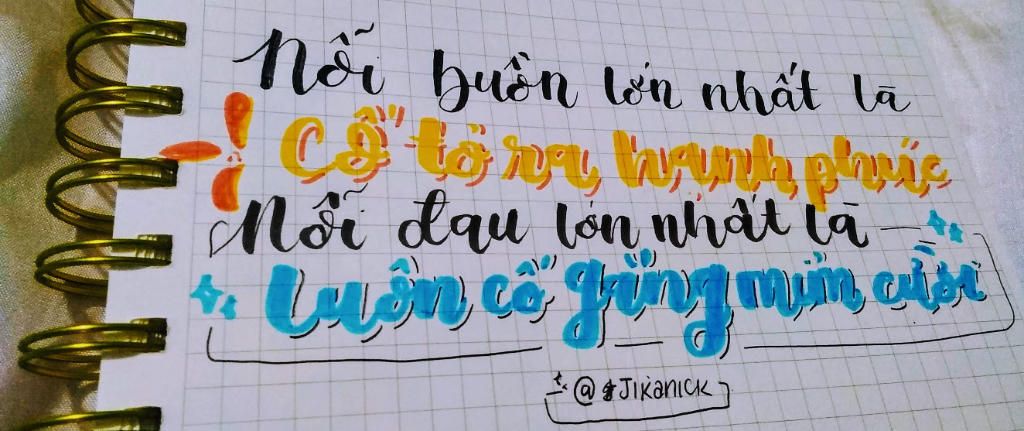 Nỗi buồn lớn nhất là
Cố tỏ ra hạnh phúc
Nỗi đau lớn nhất là
Luôn cố gắng mỉm cười
@JIKANICK